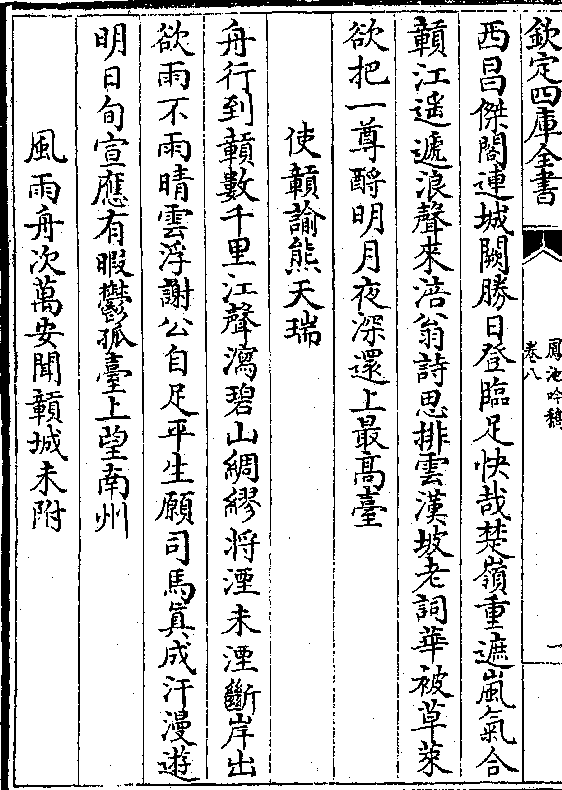 欽定四庫全書
鳳池吟稿
卷八
一
西昌傑閣連城闕勝日登臨足快哉楚嶺重遮嵐氣合
贑江遥遞浪聲來涪翁詩思排雲漢坡老詞華被草萊
欲把一尊酹明月夜深還上最髙臺
使贑諭熊天瑞
舟行到贑數千里江聲瀉碧山綢繆将湮未湮斷岸出
欲雨不雨晴雲浮謝公自足平生願司馬真成汗漫遊
明日旬宣應有暇鬱孤臺上望南州
風雨舟次萬安聞贑城未附